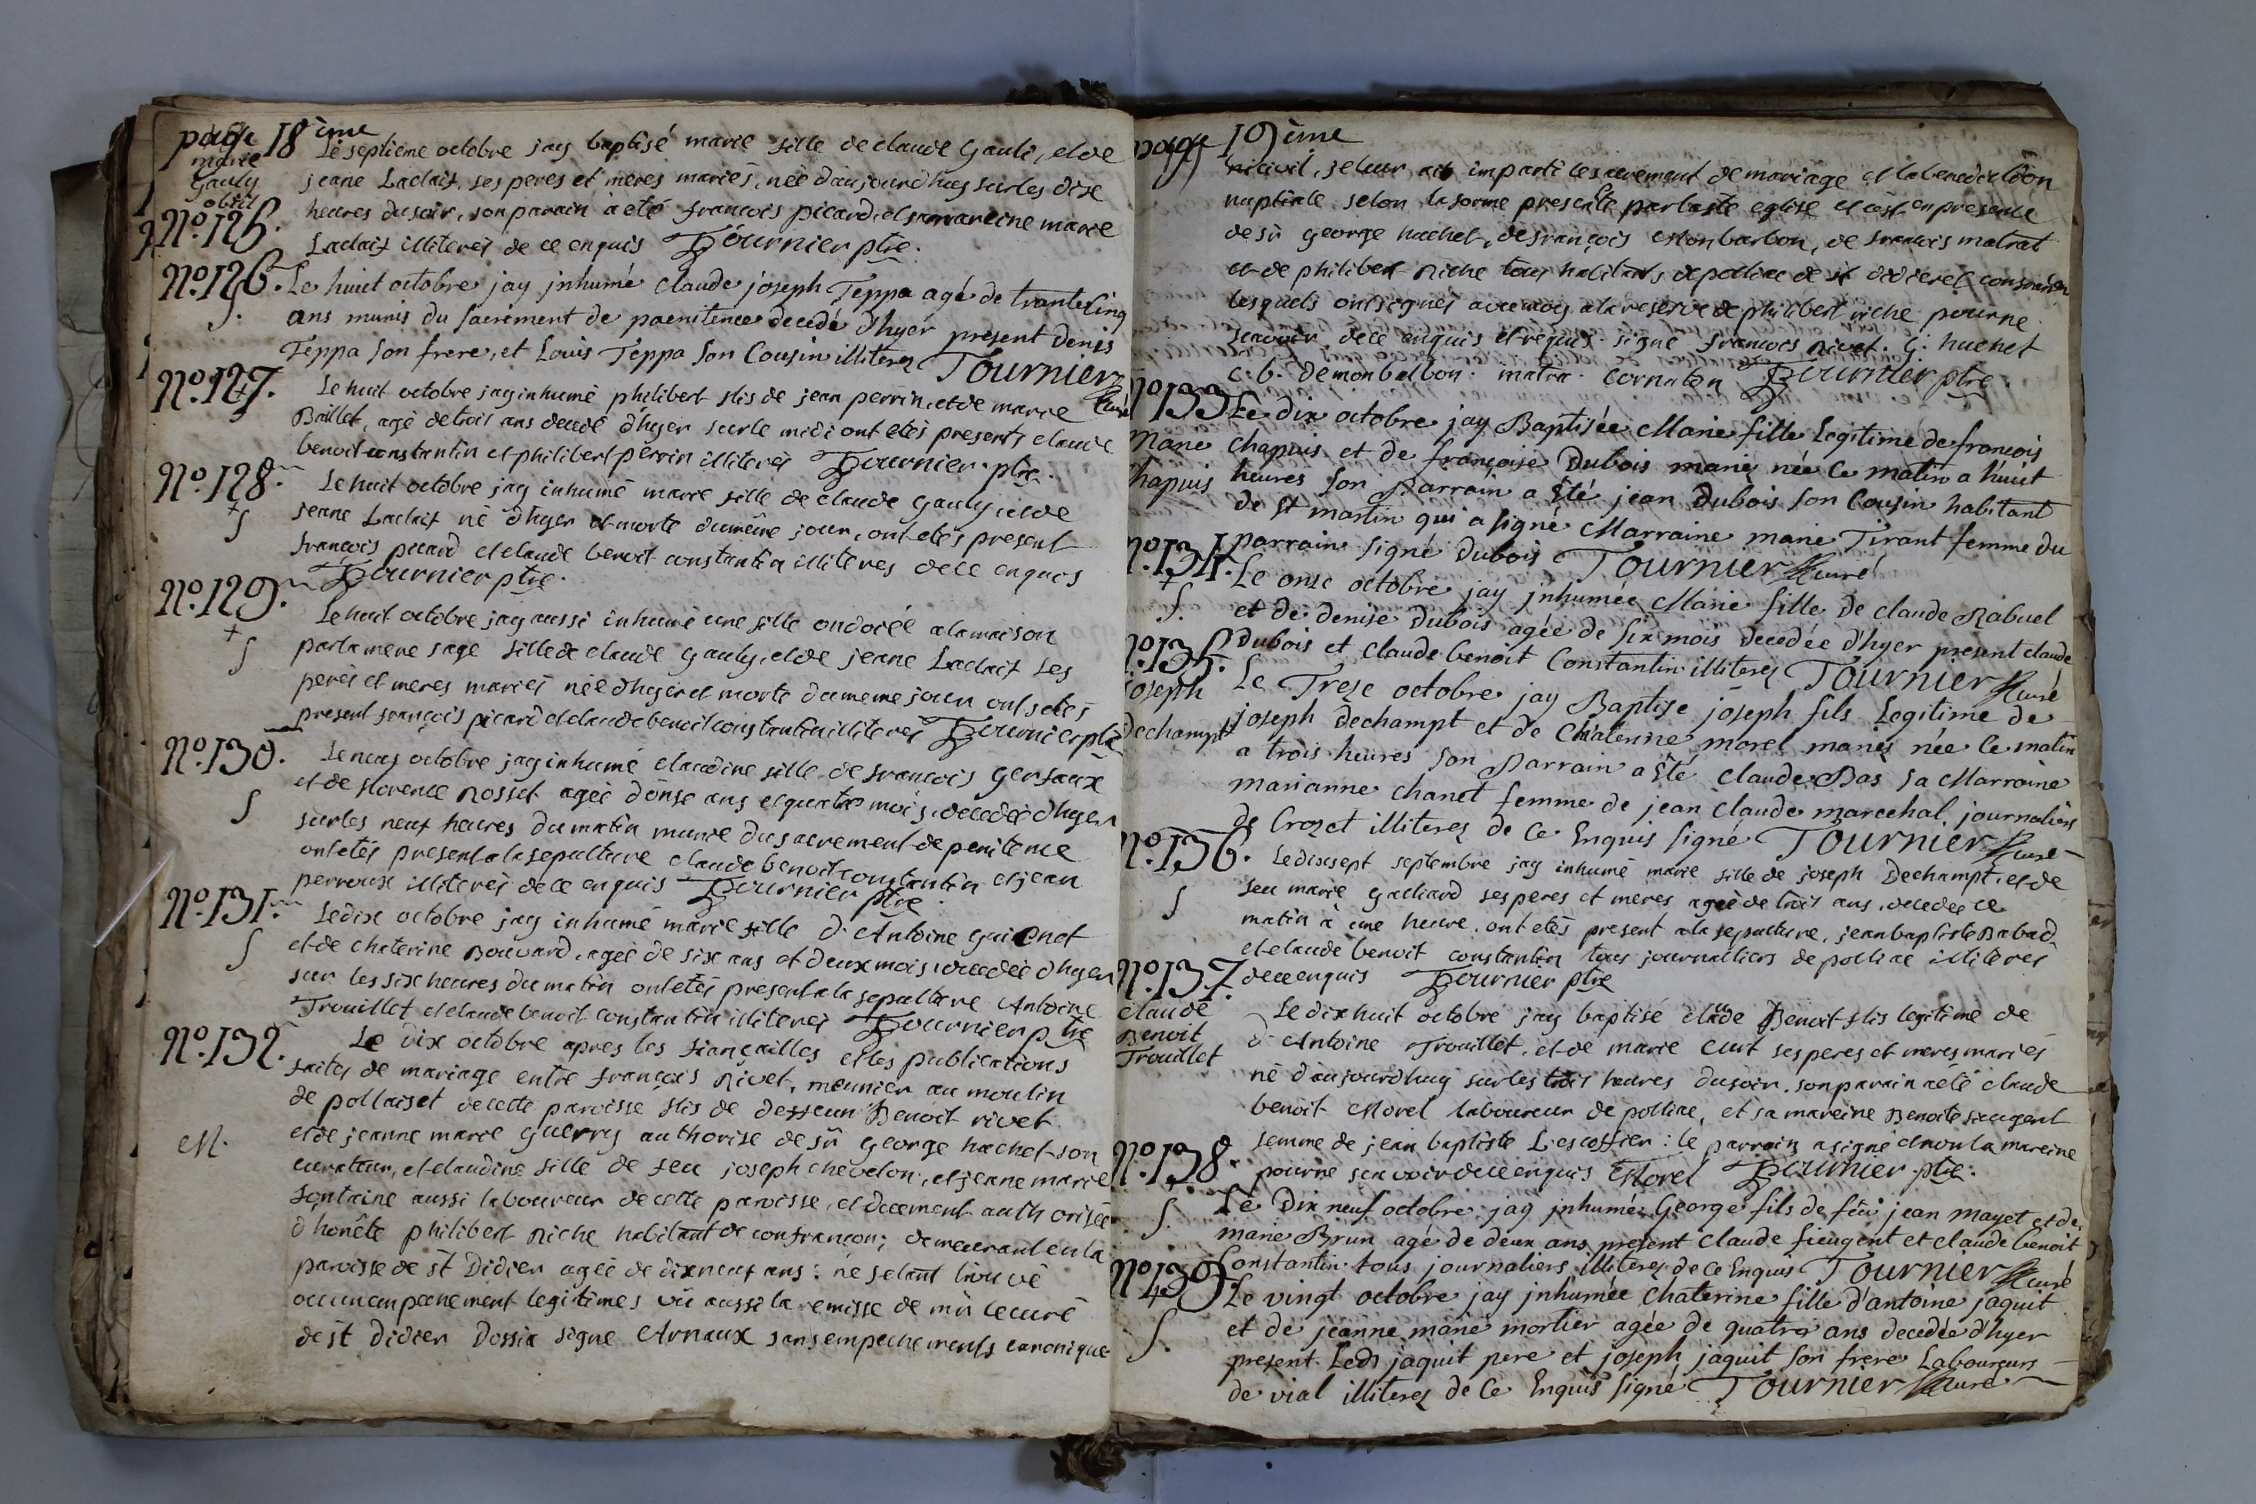 page 18ème
marie
Gauly
obiit
Le septieme octobre jay baptisé marie fille de claude Gauli, et de
jeane Laclaix, ses peres et meres mariés, née d'aujourdhuy sur les dixe
N.º 125.
heures du soir, son parain a eté francois picard, et sa mareine marie
Laclaix illiterés de ce enquis Tournier ptre.
N.º 126.
Le huict octobre jay jnhumé claude joseph Teppa agé de trantecinq
ans munis du sacrement de paenitence decedé d'hyer present denis
Teppa son frere, et Louis Teppa son Cousin illiterez Tournier
Curé
N.º 127.
Le huit octobre jay inhumé philibert fils de jean perrin, et de marie
Baillet, agé de trois ans decedé d'hyer sur le midi ont etés presents claude
benoit constantin et philibert perrin illiterés Tournier ptre.
N.º 128.
Le huit octobre jay inhumé marie fille de claude Gauly, et de
jeane Laclaix né d'hyer et morte du même jour, ont etés present
francois picard et claude benoit constantin illiteres de ce enquis
Tournier ptre.
N.º 129.
Le huit octobre jay aussi inhumé une fille ondoiée a la maison
par la mere sage fille de claude Gauly, et de jeane Laclaix ses
peres et meres mariés née d'hyer et morte du meme jour ont etés
present françois picard et claude benoit constantin illiterés Tournier ptre
N.º 130.
Le neuf octobre jay inhumé claudine fille de francois Gersaux
et de florence Rosset agée d'onse ans et quatre mois, decedée d'hyer
sur les neuf heures du matin munie du sacrement de penitence
ont etés present a la sepulture claude benoit constantin et jean
perroux illiterés de ce enquis Tournier ptre.
N.º 131.
Le dix octobre jay inhumé marie fille d'Antoine Guionet
et de chaterine Bouvard, agée de six ans et deux mois, decedée d'hyer
sur les six heures du matin ont etés present a la sepulture Antoine
Trouillet et claude benoit constantin illiterés Tournier ptre
N.º 132.
Le dix octobre apres les fiançailles et les publications
faites de mariage entre françois Rivet, meunier au moulin
de pollaiset de cette paroisse fils de deffeun Benoit rivet
et de jeanne marie Guerry authorise de sr George hachet son
M.
curateur, et claudine fille de feu joseph chevelon, et jeane marie
fontaine aussi laboureur de cette paroisse, et decement authorisée
d'honête philibert Riche habitant de confrançon; demeurant en la
paroisse de st Didier agée de dixneuf ans: ne setant trouvé
aucun empechement legitimes vû aussi la remisse de mr le curé
de st Didier Dossia signe Arnaux sans empechements canonique
page 19ème
ni civil, je leur ais imparti le sacrement de mariage et la benediction
nuptialle selon la forme prescritte par la ste eglise et c'est en presence
de sr George huchet, de françois Monbarbon, de françois matrat
et de philibert Riche tous habitants de polliae de st didier et confrançon
lesquels ont signés avec moy a la reserve de philibert riche pour ne
scavoir de ce enquis et requis. signé françois Rivet. G. huchet
c. b. demonbalbon. matra. cornaten Tournier ptre.
N.º 133
Marie
Chapuis
Le dix octobre jay Baptisée Marie fille Legitime de francois
chapuis et de françoise Dubois mariez née ce matin a huict
heures son Parrain a Eté jean Dubois son Cousin habitant
de st martin qui a signé Marraine marie Tirant femme du
parrain signé Dubois Tournier Curé
N.º 134.
Le onze octobre jay jnhumée Marie fille de claude Rabuel
et de denise Dubois agée de six mois decedée d'hyer present claude
Dubois et claude benoit Constantin illiterez Tournier Curé
N.º 135.
Joseph
Dechampt
Le Treze octobre jay Baptisé joseph fils Legitime de
joseph dechampt et de Chaterine morel mariés née ce matin
a trois heures son Parrain a Eté claude Bas sa Marraine
marianne chanet femme de jean claude marechal journaliers
de Crozet illiterez de ce Enquis signé Tournier Curé
N.º 136.
Le dixsept septembre jay inhumé marie fille de joseph Dechampt, et de
feu marie Galliard ses peres et meres agée de trois ans, decedée ce
matin à une heure. ont etés present a la sepulture, jean baptiste Babad
et claude benoit constantin tous journalliers de polliae illiteres
de ce enquis Tournier ptre
N.º 137.
claude
Benoit
Trouillet
Le dixhuit octobre jay baptisé claude Benoit fils legitime de
d'Antoine Trouillet, et de marie Curt ses peres et meres mariés
né d'aujourdhuy sur les trois heures du soir, son parain a eté claude
benoit Morel laboureur de polliae, et sa mareine Benoite sieugent
femme de jean baptiste Lescoffier: le parrain a signé et non la mareine
pour ne scavoir de ce enquis Morel Tournier ptre.
N.º 138
Le Dix neuf octobre jay jnhumé George fils de feu jean mayet et de
marie Brun agé de deux ans present claude fieugent et claude benoit
Constantin tous journaliers illiterez de ce Enquis Tournier Curé
N.º 139.
Le vingt octobre jay jnhumée Chaterine fille d'antoine jaquit
et de jeanne marie mortier agée de quatre ans decedée d'hyer
present Ledt jaquit pere et joseph jaquit son frere Laboureurs
de vial illiterez de ce Enquis signé Tournier Curé